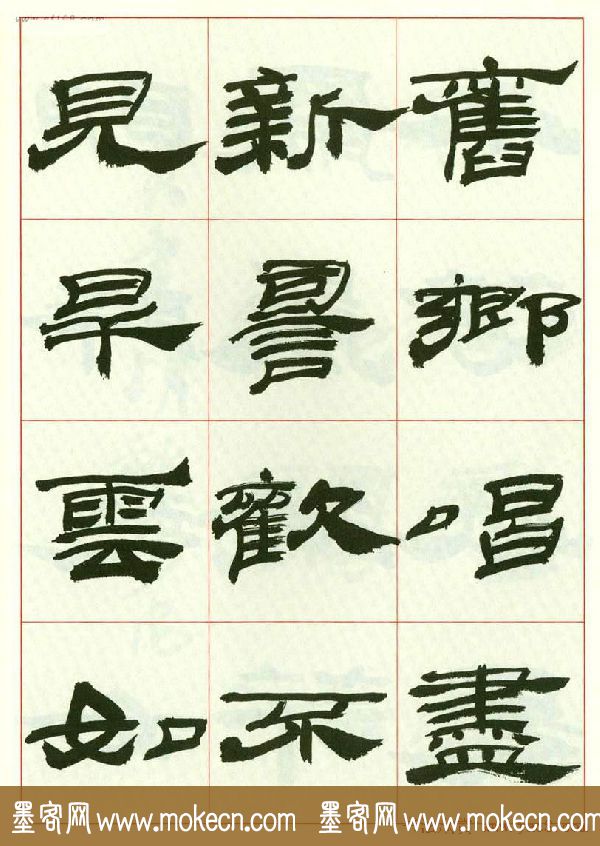 舊鄉唱盡
新詞歡不
見旱雲如
墨客网 www.mokecn.com 墨客网 www.mokecn.com